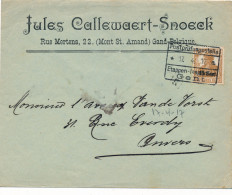 Jules Callewaert-Snoeck
Rue Mertens, 22. (Mont St. Amand) Gand-Belgique.
Postprüfungsstelle
Etappen-
Gent
Monsieur l'a Van de Vorst
31. Rue
Anvers